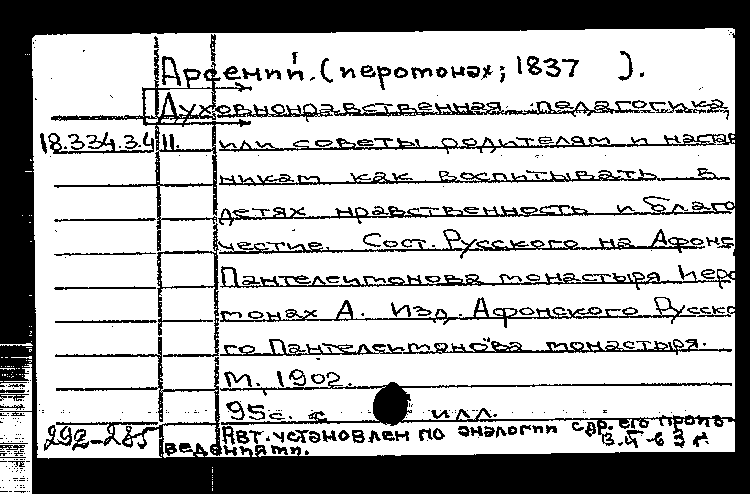 Арсений. (иеромонах; 1837 ).
Духовнонравственная педагогика,
18.334.3.4 II. или советы родителям и настав
никам как воспитывать в
детях нравственность и благо
честие. Сост. Русского на Афонс
Пантелеимонова монастыря Иеро
монах А. Изд. Афонского Русско
го Пантелеимонова монастыря.
М., 1902.
95с. с илл.
292-285 Авт. установлен по аналогии с др. его произ-
ведениями.